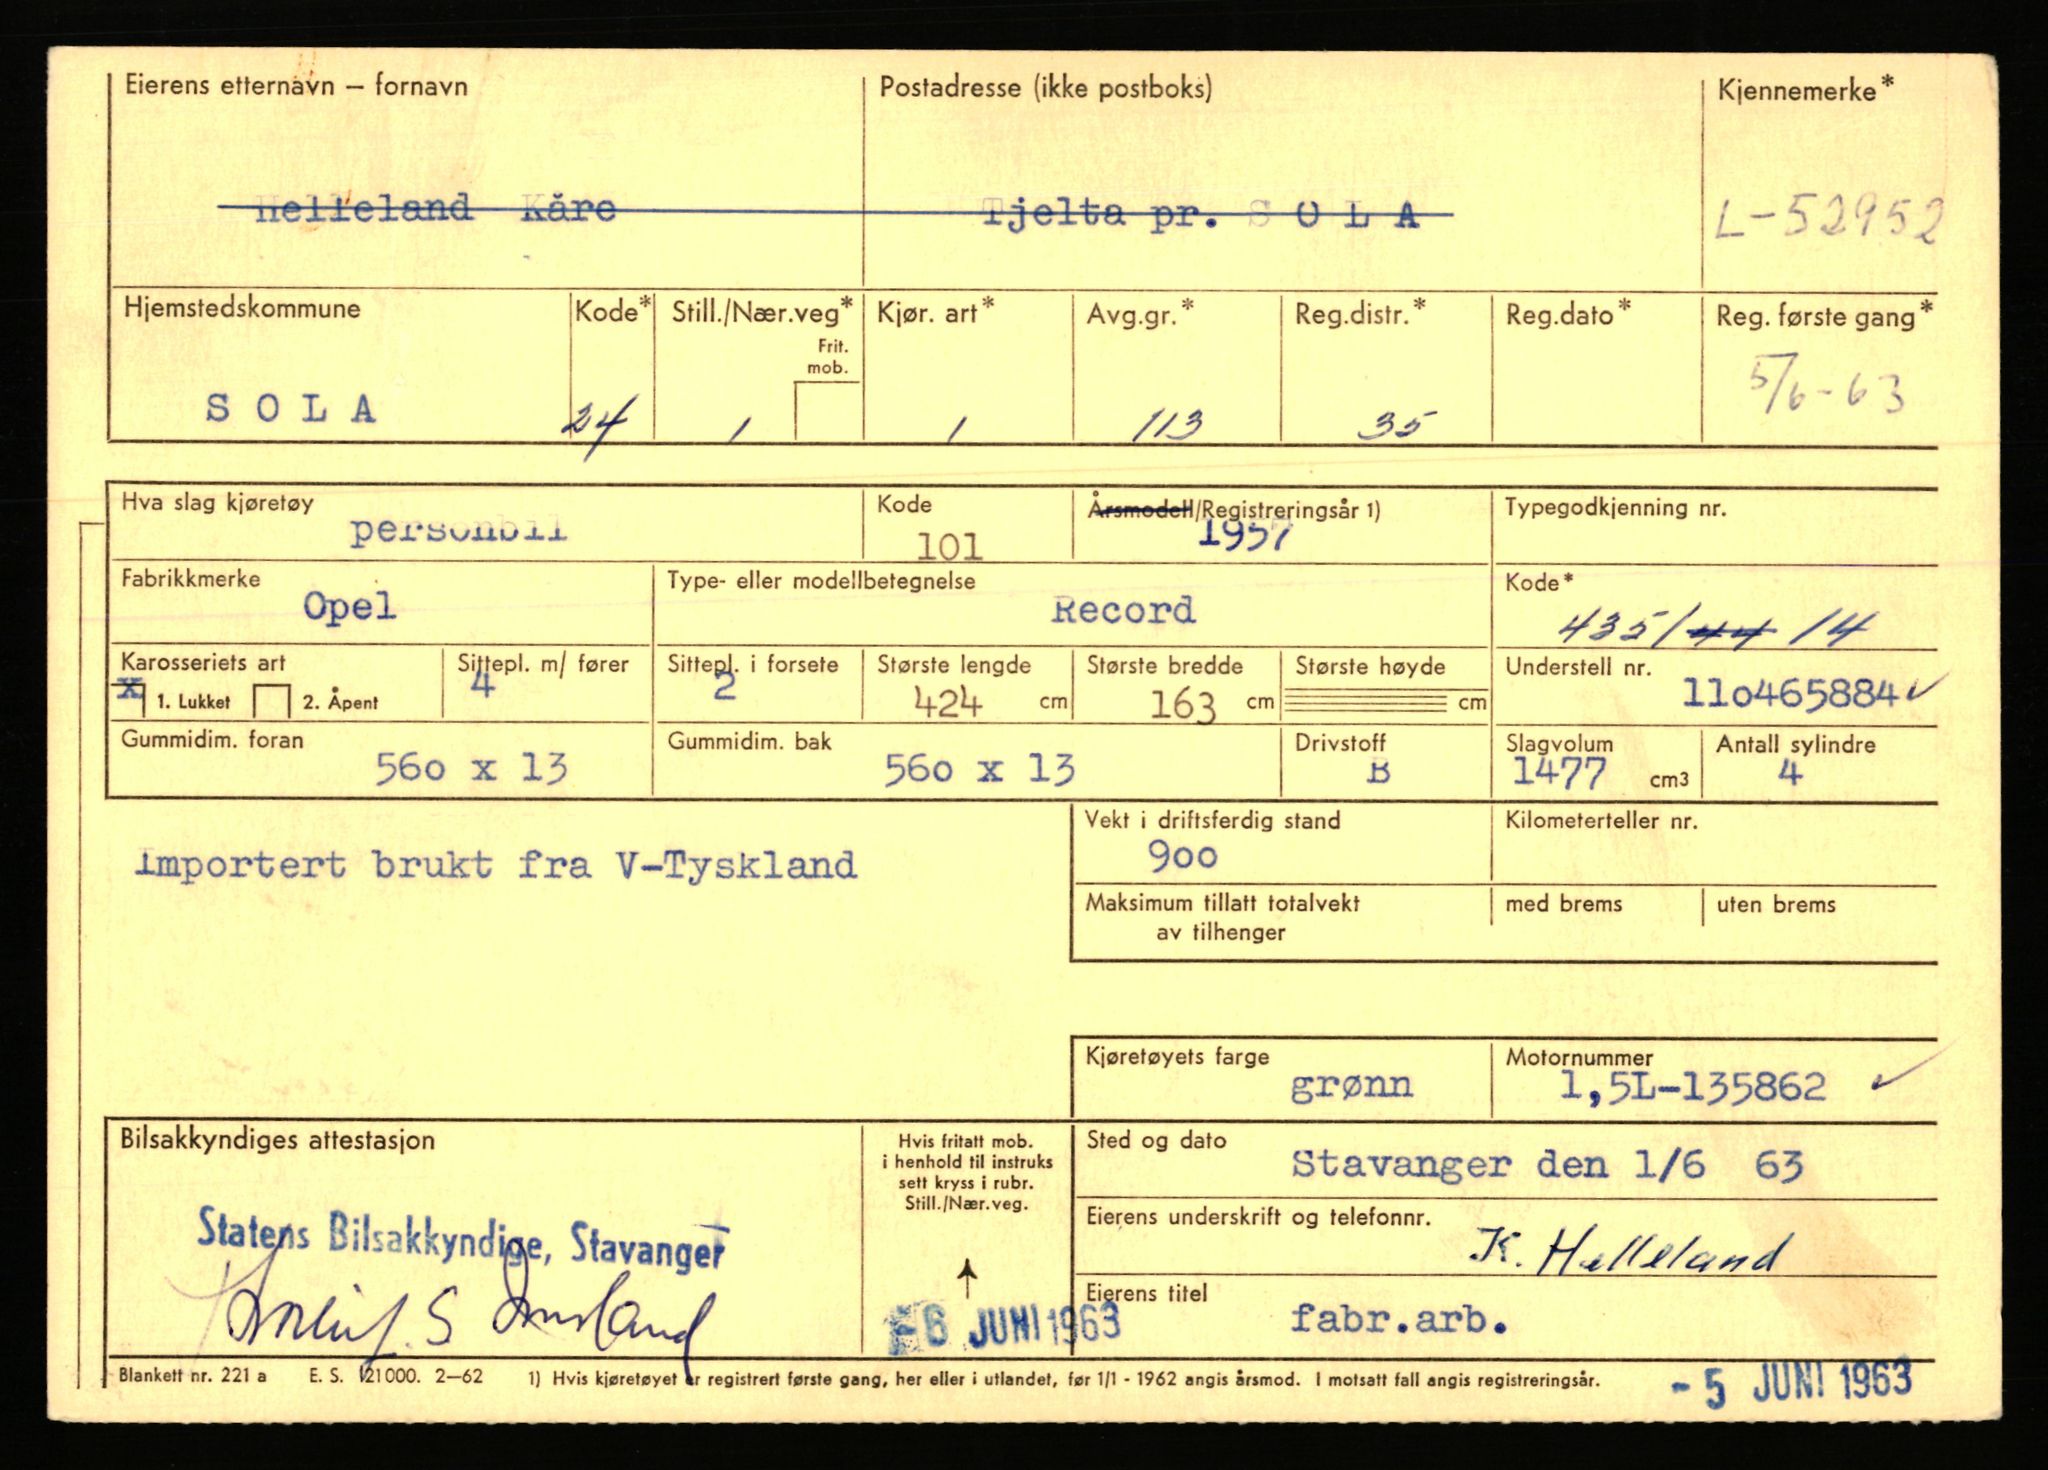 Eierens etternavn – fornavn Postadresse (ikke postboks) Kjennemerke*
Helleland Kåre Tjelta pr. S O L A L-52952
Hjemstedskommune Kode* Still./Nær.veg* Kjør. art* Avg.gr.* Reg.distr.* Reg.dato* Reg. første gang*
Frit.
mob.
S O L A 24 1 1 113 35 5/6-63
Hva slag kjøretøy Kode Årsmodell/Registreringsår 1) Typegodkjenning nr.
personbil 101 1957
Fabrikkmerke Type- eller modellbetegnelse Kode*
Opel Record 435/44 14
Karosseriets art Sittepl. m/ fører Sittepl. i forsete Største lengde Største bredde Største høyde Understell nr.
x 1. Lukket 2. Åpent 4 2 424 cm 163 cm cm 110465884 ✓
Gummidim. foran Gummidim. bak Drivstoff Slagvolum Antall sylindre
560 x 13 560 x 13 B 1477 cm3 4
Vekt i driftsferdig stand Kilometerteller nr.
Importert brukt fra V-Tyskland 900
Maksimum tillatt totalvekt med brems uten brems
av tilhenger
Kjøretøyets farge Motornummer
grønn 1,5L-135862 ✓
Bilsakkyndiges attestasjon Hvis fritatt mob.
i henhold til instruks
sett kryss i rubr.
Still./Nær.veg.
Sted og dato
Stavanger den 1/6 63
Statens Bilsakkyndige, Stavanger
Eierens underskrift og telefonnr.
K. Helleland
Eierens titel
fabr.arb.
-6 JUNI 1963
Blankett nr. 221 a E. S. 121000. 2–62 1) Hvis kjøretøyet er registrert første gang, her eller i utlandet, før 1/1 - 1962 angis årsmod. I motsatt fall angis registreringsår.
- 5 JUNI 1963